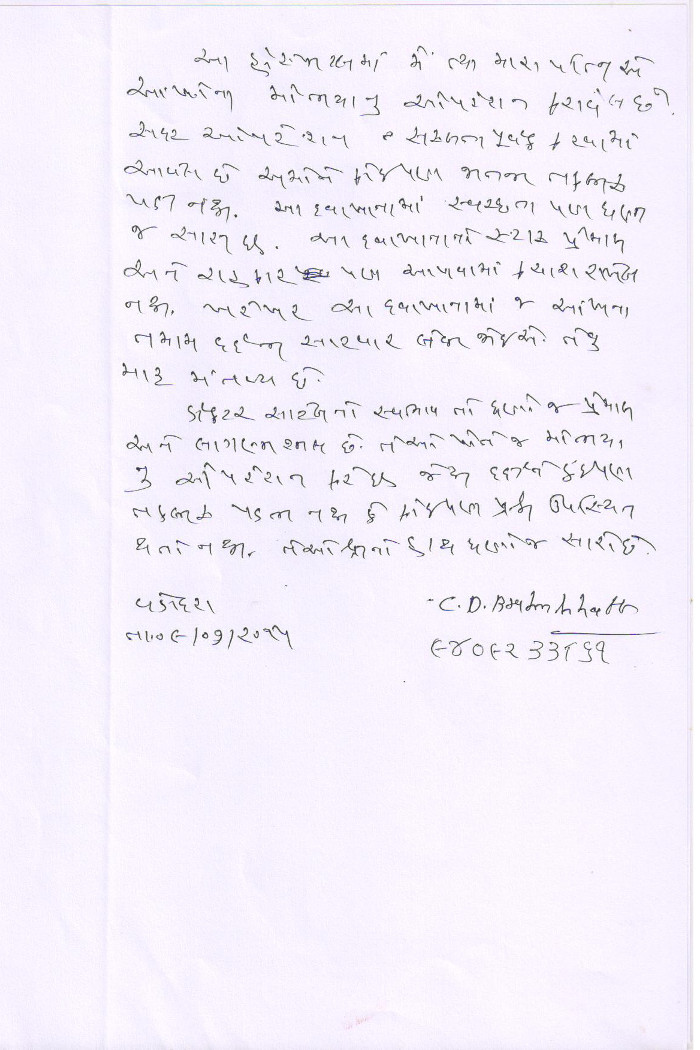 આ હોસ્પિટલમાં મેં તથા મારા પત્નિએ
આંખોના મોતિયાનુ ઓપરેશન કરાવેલ છે.
સદર ઓપરેશન સફળતા પુર્વક કરવામાં
આવેલ છે અમોને કોઈપણ જાતની તકલીફ
પડી નથી. આ દવાખાનામાં સ્વચ્છતા પણ ઘણી
જ સારી છે. આ દવાખાનાનો સ્ટાફ પ્રેમાળ
અને સહકાર પણ આપવામાં કચાશ રાખેલ
નથી. ખરેખર આ દવાખાનામાં જ આંખના
તમામ દર્દની સારવાર લેવી જોઈએ. તેવુ
મારૂ મંતવ્ય છે.
ડોકટર સાહેબનો સ્વભાવ તો ઘણો જ પ્રેમાળ
અને લાગણીશીલ છે. તેઓ પોતે જ મોતિયા
નુ ઓપરેશન કરે છે જેથી દર્દીને કંઈપણ
તકલીફ પડતી નથી કે કોઈપણ પ્રશ્ન ઉપસ્થિત
થતો નથી. તેઓશ્રીનો હાથ ઘણો જ સારો છે.
વડોદરા
તા.૦૯/૦૧/૨૦૧૫
C. D. Brahmbhatt
૯૪૦૯૨૩૩૧૬૧